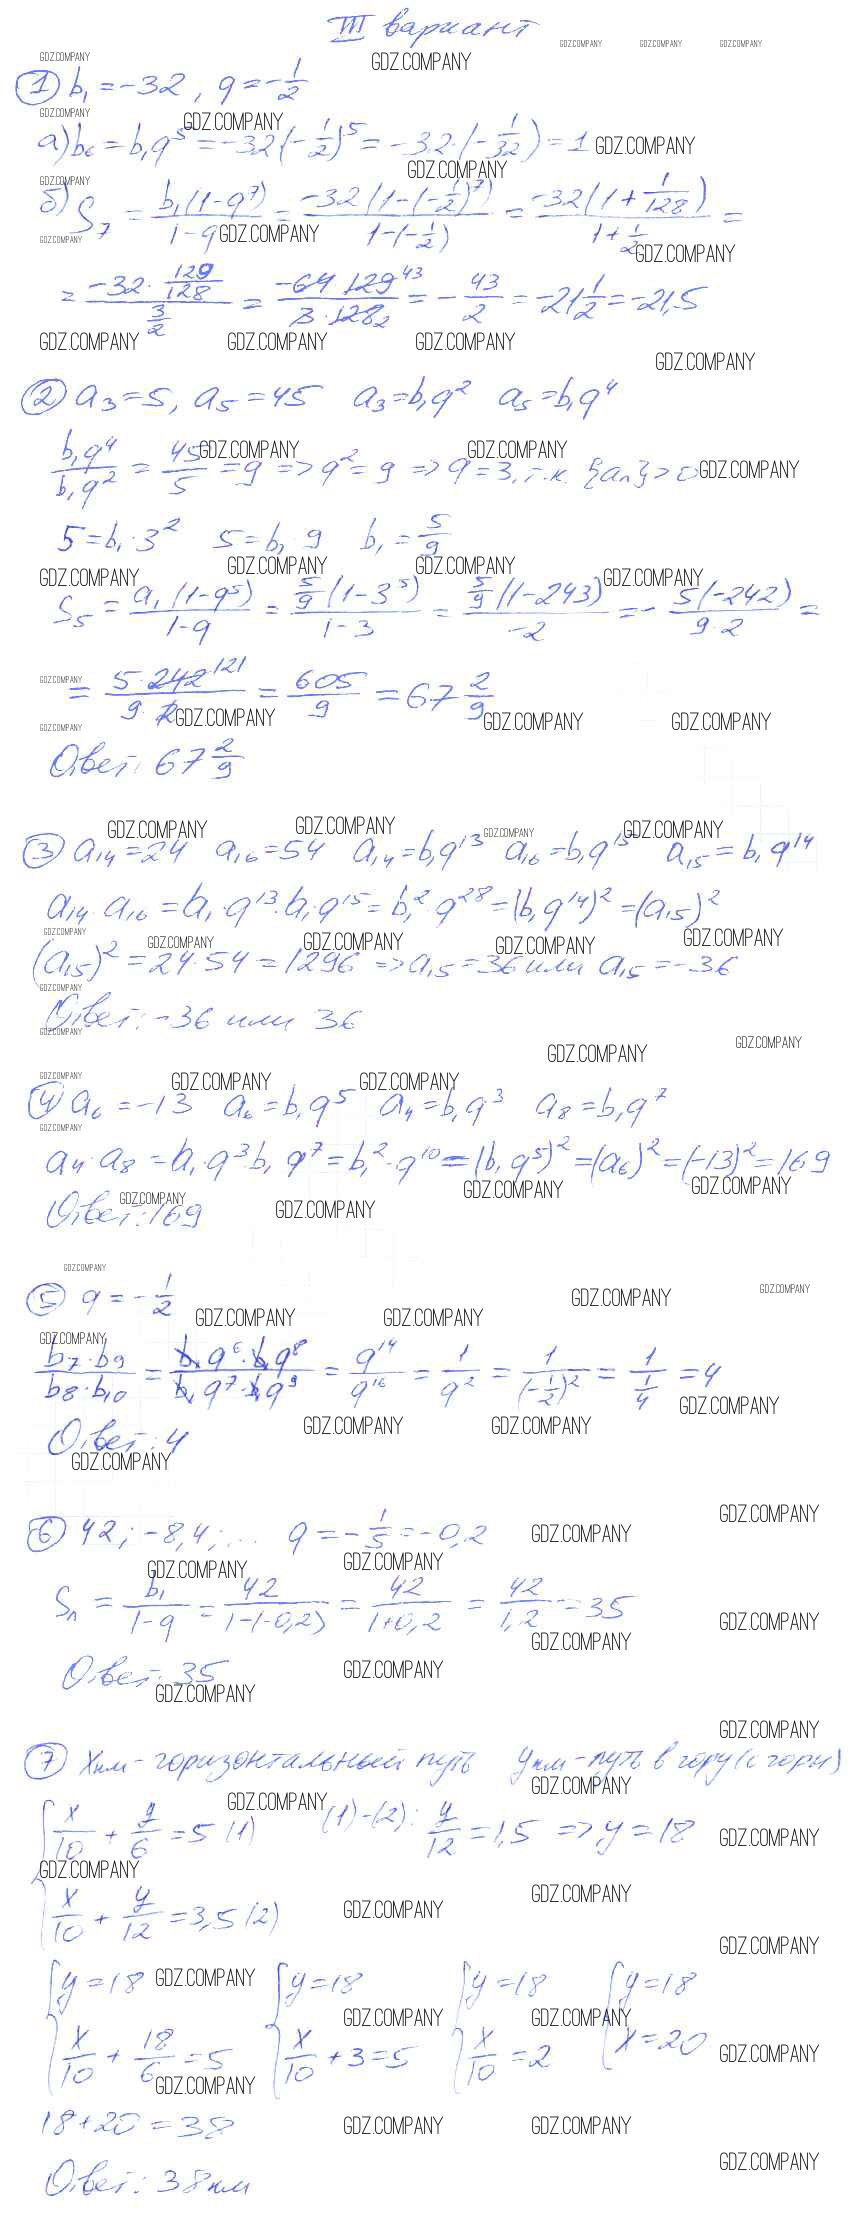 III вариант
GDZ.COMPANY
① b₁ = -32, q = -1/2
а) b₆ = b₁q⁵ = -32(-1/2)⁵ = -32·(-1/32) = 1
б) S₇ = b₁(1-q⁷)/(1-q) = -32(1-(-1/2)⁷)/(1-(-1/2)) = -32(1+1/128)/(1+1/2) =
= (-32·129/128)/(3/2) = (-64·129 43)/(3·128 2) = -43/2 = -21 1/2 = -21,5
② a₃=5, a₅=45 a₃=b₁q² a₅=b₁q⁴
b₁q⁴/b₁q² = 45/5 = 9 => q² = 9 => q = 3, т.к. {an}>0
5=b₁·3² 5=b₁·9 b₁=5/9
S₅ = a₁(1-q⁵)/(1-q) = 5/9(1-3⁵)/(1-3) = 5/9(1-243)/(-2) = -5(-242)/(9·2) =
= (5·242 121)/(9·2) = 605/9 = 67 2/9
Ответ: 67 2/9
③ a₁₄=24 a₁₆=54 a₁₄=b₁q¹³ a₁₆=b₁q¹⁵ a₁₅=b₁q¹⁴
a₁₄·a₁₆ = a₁·q¹³·a₁·q¹⁵ = b₁²·q²⁸ = (b₁q¹⁴)² = (a₁₅)²
(a₁₅)² = 24·54 = 1296 => a₁₅=36 или a₁₅=-36
Ответ: -36 или 36
④ a₆ = -13 a₆=b₁q⁵ a₄=b₁q³ a₈=b₁q⁷
a₄·a₈ = a₁·q³b₁q⁷ = b₁²·q¹⁰ = (b₁q⁵)² = (a₆)² = (-13)² = 169
Ответ: 169
⑤ q = -1/2
b₇·b₉/b₈·b₁₀ = b₁q⁶·b₁q⁸/b₁q⁷·b₁q⁹ = q¹⁴/q¹⁶ = 1/q² = 1/(-1/2)² = 1/(1/4) = 4
Ответ: 4
⑥ 42; -8,4; ... q = -1/5 = -0,2
Sn = b₁/(1-q) = 42/(1-(-0,2)) = 42/(1+0,2) = 42/1,2 = 35
Ответ: 35
⑦ x км - горизонтальный путь y км - путь в гору (с горы)
{ x/10 + y/6 = 5 (1) (1)-(2): y/12 = 1,5 => y = 18
{ x/10 + y/12 = 3,5 (2)
{ y=18 { y=18 { y=18 { y=18
{ x/10 + 18/6 = 5 { x/10 + 3 = 5 { x/10 = 2 { x=20
18+20=38
Ответ: 38 км